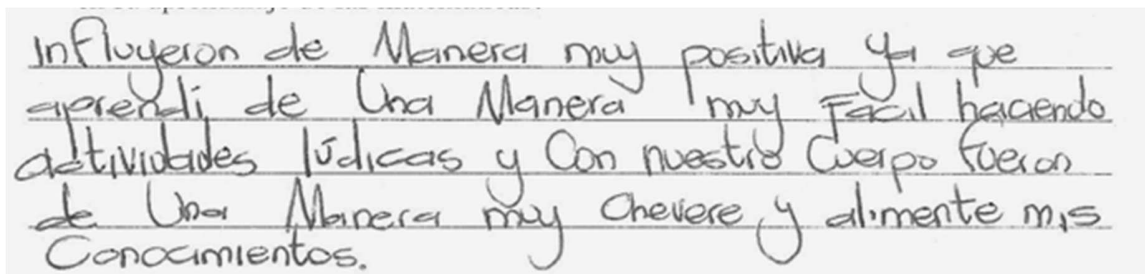 Influyeron de Manera muy positiva ya que
aprendi de Una Manera muy Facil haciendo
actividades lúdicas y Con nuestro Cuerpo fueron
de Una Manera muy Chevere y alimente mis
Conocimientos.